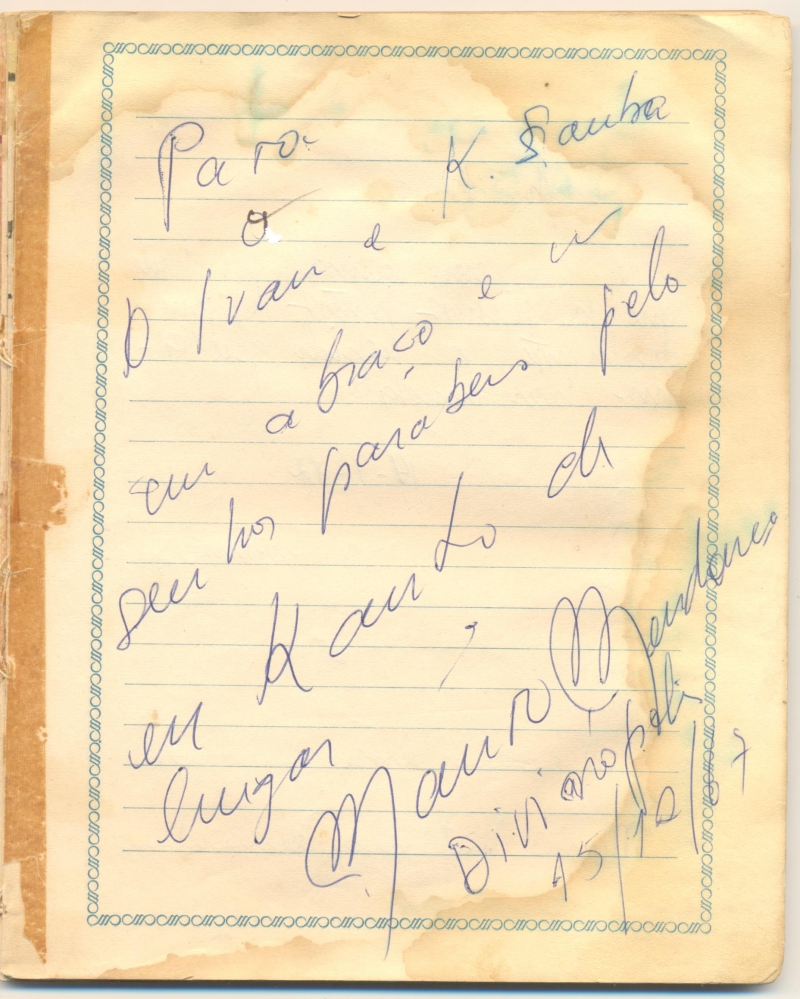 Para K. Samba
O Ivan e
um abraço e
senhor parabens pelo
Kanto de
lugar
Mauro Mendonca
Divinópolis
15/12/87